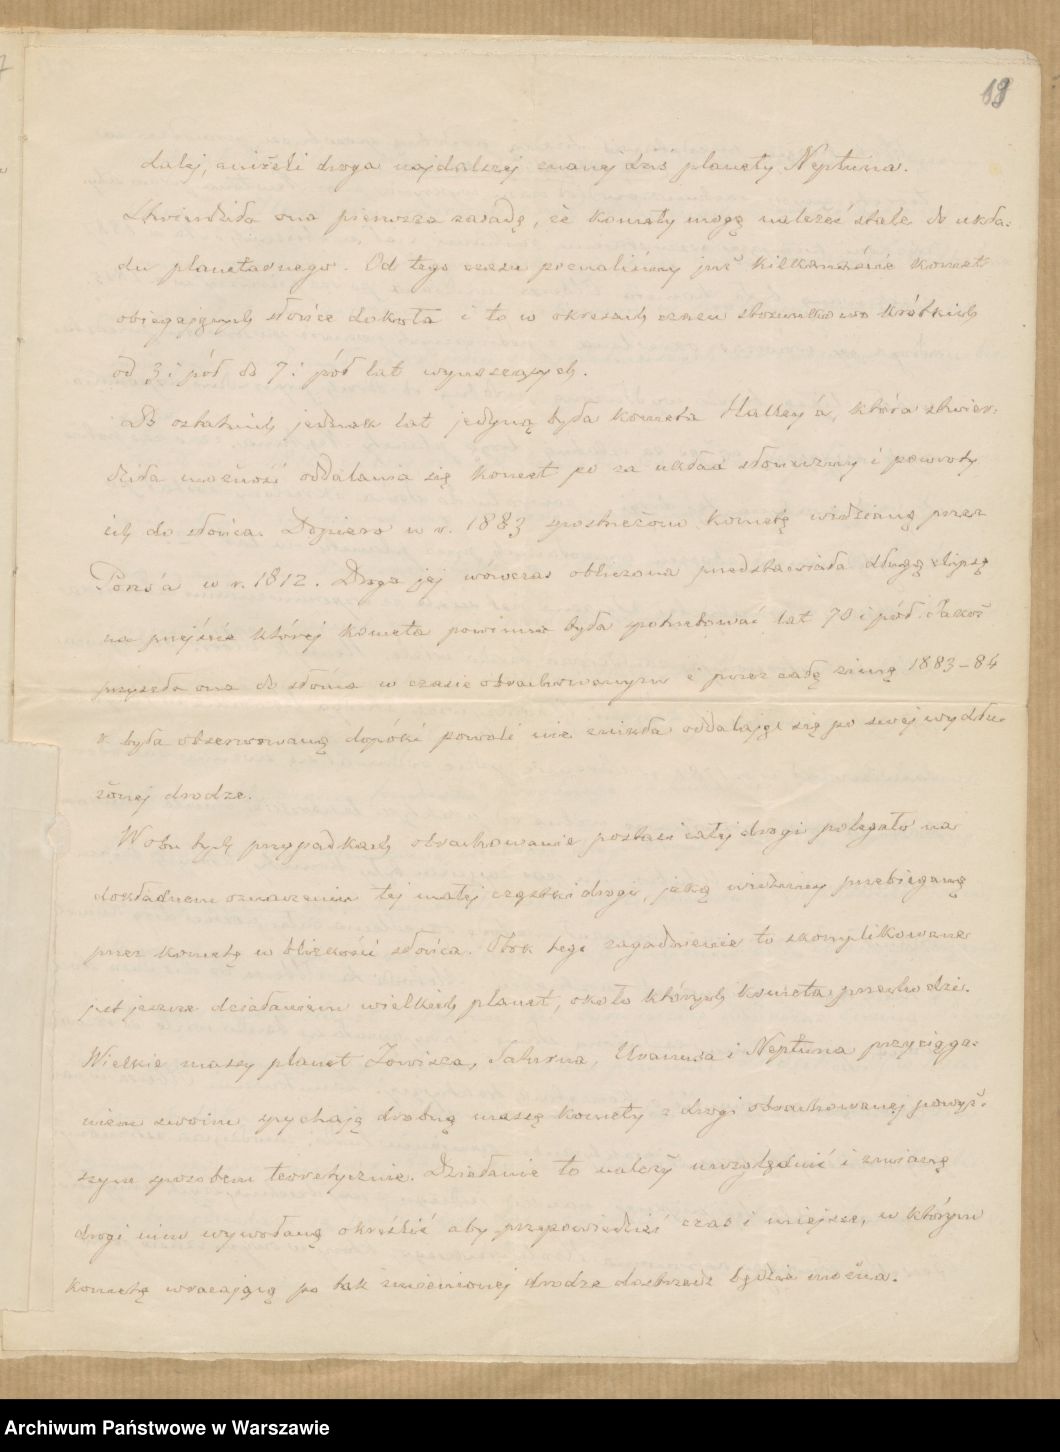 19
dalej, aniżeli droga najdalszej znanej dziś planety Neptuna.
Stwierdziła ona pierwsza zasadę, że komety mogą należeć stale do ukła-
du planetarnego. Od tego czasu poznaliśmy już kilkanaście komet
obiegających słońce dokoła i to w okresach czasu stosunkowo krótkich
od 3 i pół do 7 i pół lat wynoszących.
Do ostatnich jednak lat jedyną była kometa Halley'a, która stwier-
dziła możność oddalania się komet po za układ słoneczny i powroty
ich do słońca. Dopiero w r. 1883 spostrzeżono kometę widzianą przez
Pons'a w r. 1812. Droga jej wówczas obliczona przedstawiała długą elipsę
na przejście której kometa powinna była potrzebować lat 70 i pół. Jakoż
przyszła ona do słońca w czasie obrachowanym i przez całą zimę 1883–84
r. była obserwowaną dopóki powoli nie znikła oddalając się po swej wydłu-
żonej drodze.
W obu tych przypadkach obrachowanie postaci całej drogi polegało na
dokładnem oznaczeniu tej małej cząstki drogi, jaką widzimy przebieganą
przez kometę w bliskości słońca. Obok tego zagadnienie to skomplikowane
jest jeszcze działaniem wielkich planet, około których kometa przechodzi.
Wielkie masy planet Jowisza, Saturna, Uranusa i Neptuna przyciąga-
niem swoim spychają drobną masę komety z drogi obrachowanej powyż-
szym sposobem teoretycznie. Działanie to należy uwzględnić i zmianę
drogi nim wywołaną określić aby przepowiedzieć czas i miejsce, w którym
kometę wracającą po tak zmienionej drodze dostrzedz będzie można.
Archiwum Państwowe w Warszawie